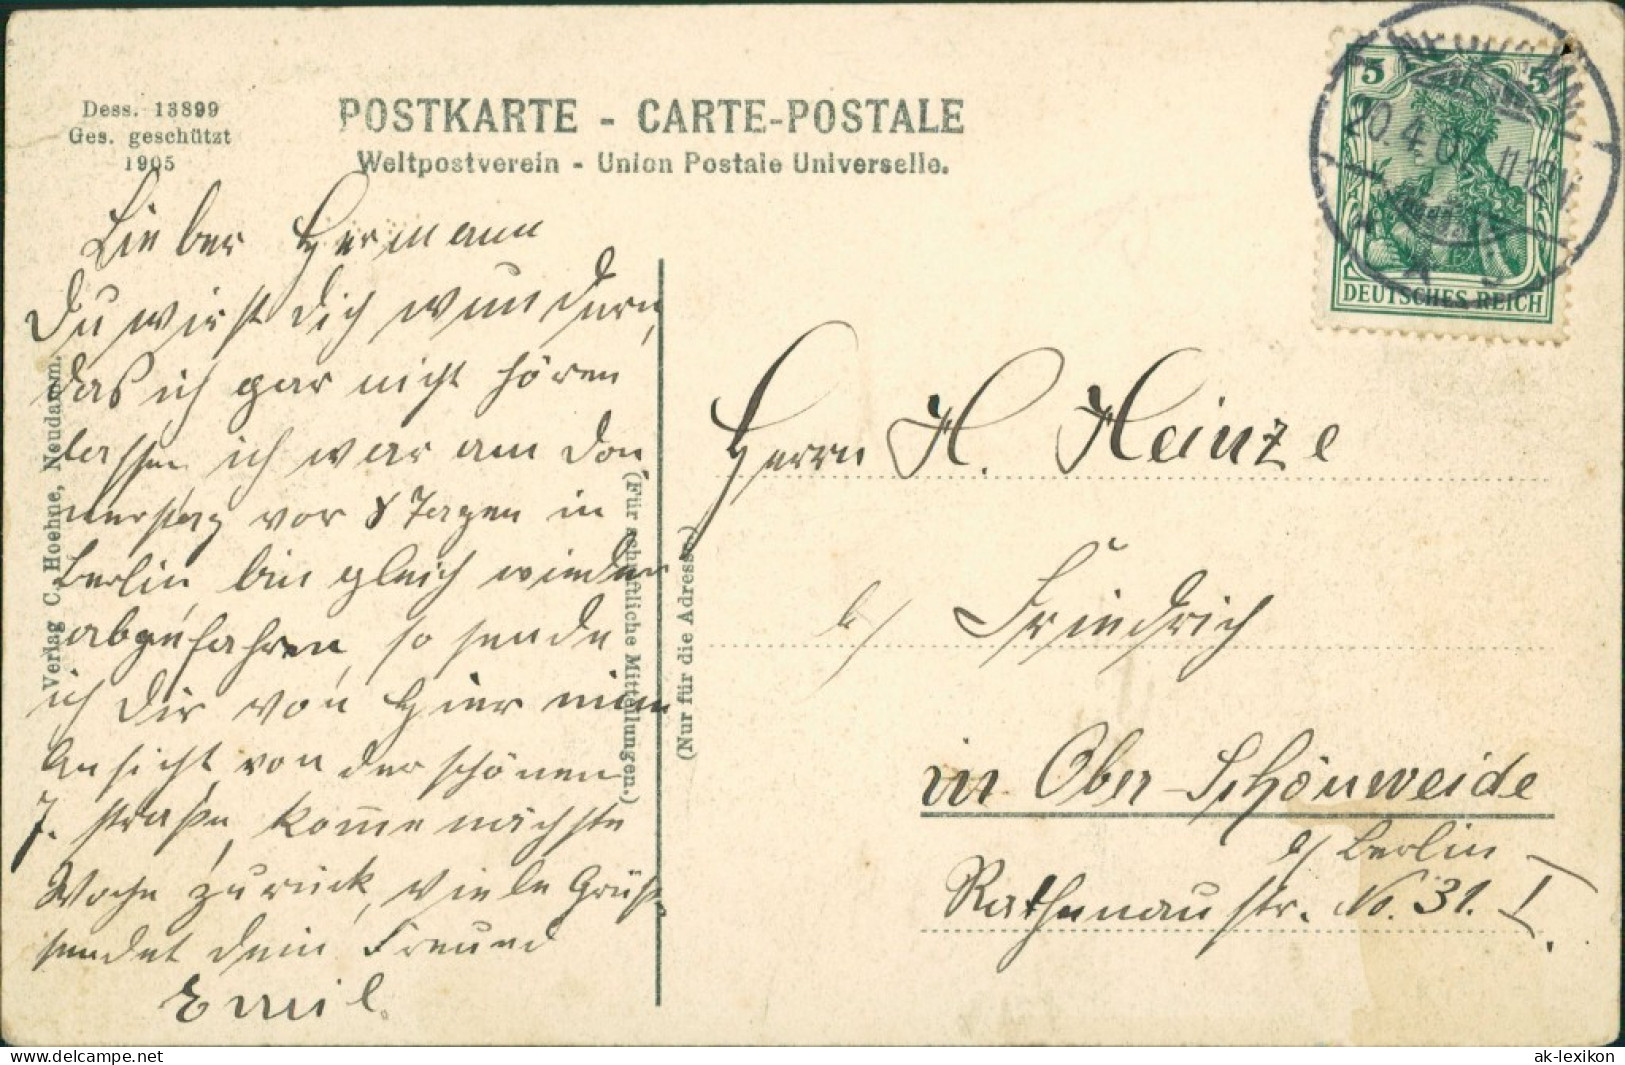 Dess. 13899
Ges. geschützt
1905
POSTKARTE - CARTE-POSTALE
Weltpostverein - Union Postale Universelle.
5 5
DEUTSCHES REICH
20.4.07. 11-12 N.
Lieber Hermann
Du wirst Dich wundern,
das ich gar nicht hören
lassen, ich war am Don
nerstag vor 8 Tagen in
Berlin, bin gleich wieder
abgefahren, so sende
ich Dir von hier eine
Ansicht von der schönen
F. straße, komme nächste
Woche zurück, viele Grüße
sendet dein Freund
Emil.
Verlag C. Hoehne, Neudamm.
(Für schriftliche Mitteilungen.)
(Nur für die Adresse)
Herrn H. Heinze
b/ Friedrich
in Ober-Schönweide
b/ Berlin
Rathenau str. No. 31. I.
ak-lexikon.com
ak-lexikon